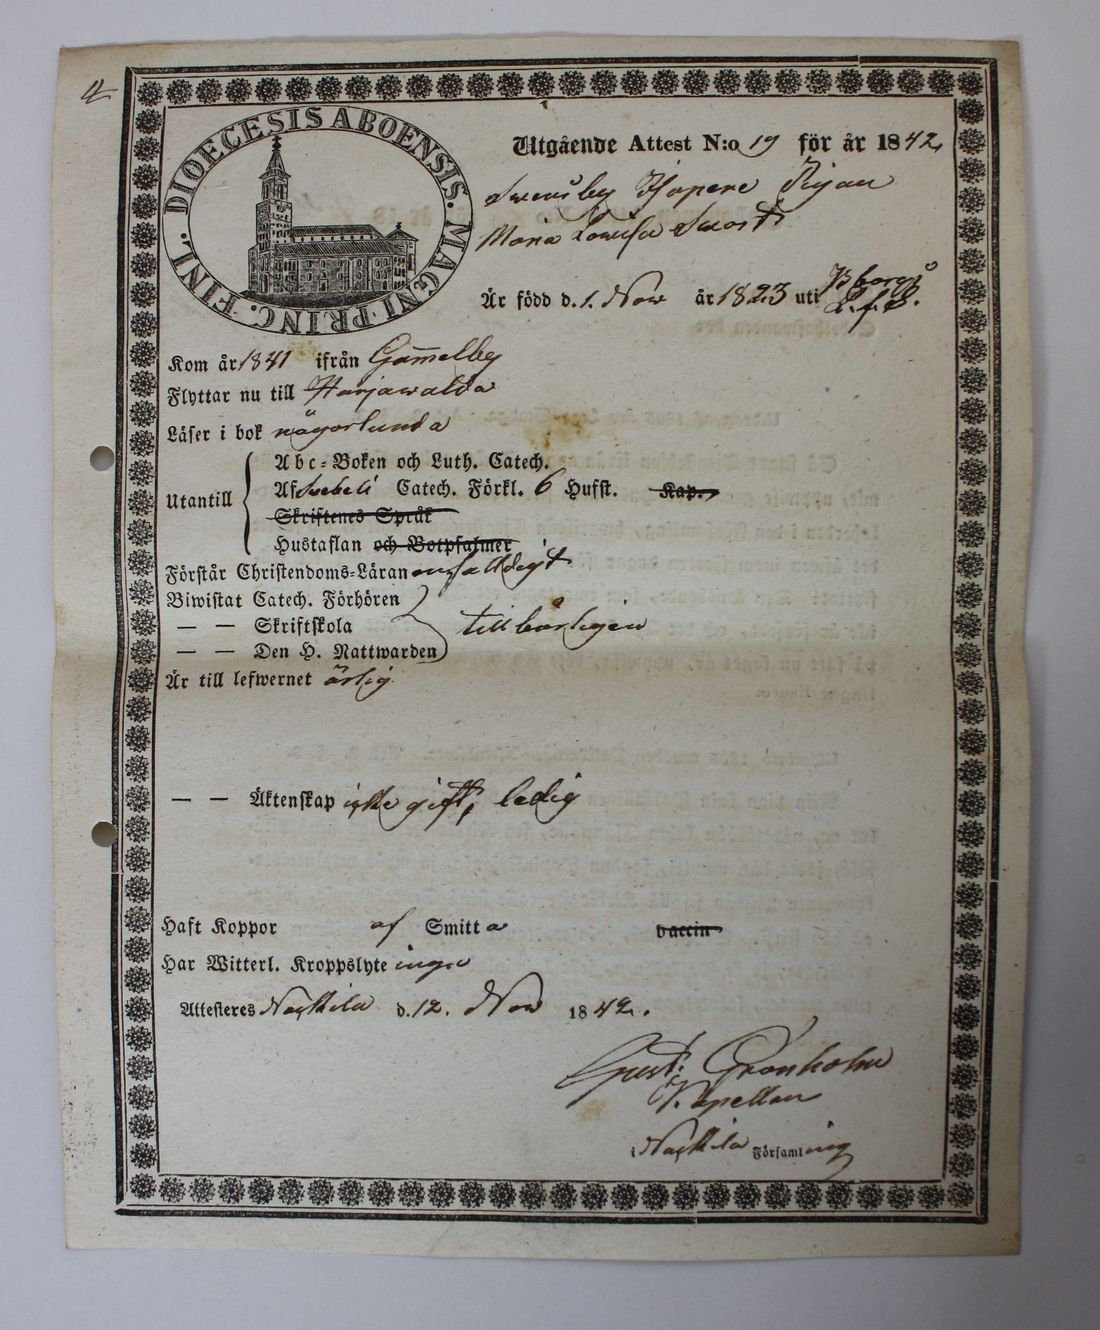 4
DIOECESIS ABOENSIS. MAGNI PRINC. FINL.
Utgående Attest N:o 19 för år 1842,
Swensby Pigan
Maria Lowisa
Är född d. 1. Nov år 1823 uti Bborgs
L.f.s.
Kom år 1841 ifrån Gammelby
Flyttar nu till Harjawalda
Läser i bok någorlunda
Abc-Boken och Luth. Catech.
Utantill Af Svebeli Catech. Förkl. 6 Hufst. Kap.
Skriftenes Språk
Hustaflan och Botpsalmer
Förstår Christendoms-Läran enfalldigt
Biwistat Catech. Förhören
— — Skriftskola tillbörligen
— — Den H. Nattwarden
Är till lefwernet ärlig
— — Äktenskap icke gift, ledig
Haft Koppor af Smitta vaccin
Har Witterl. Kroppslyte inga
Attesteres Nackila d. 12. Nov 1842.
Gust. Grönholm
Kapellan
i Nackila Församling